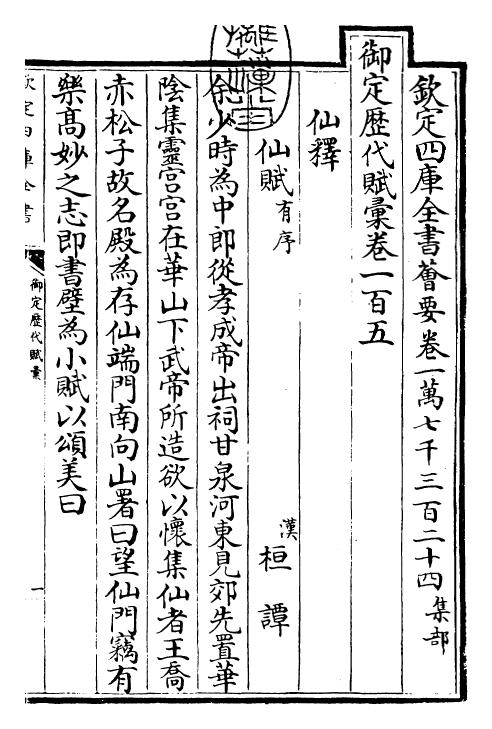 欽定四庫全書薈要卷一萬七千三百二十四 集部
御定歴代賦彙卷一百五
仙釋
仙賦有序 漢 桓譚
余少時為中郎從孝成帝出祠甘泉河東見郊先置華
陰集靈宫宫在華山下武帝所造欲以懷集仙者王喬
赤松子故名殿為存仙端門南向山署曰望仙門竊有
樂髙妙之志即書壁為小賦以頌美曰
欽定四庫全書
御定歴代賦彙
一